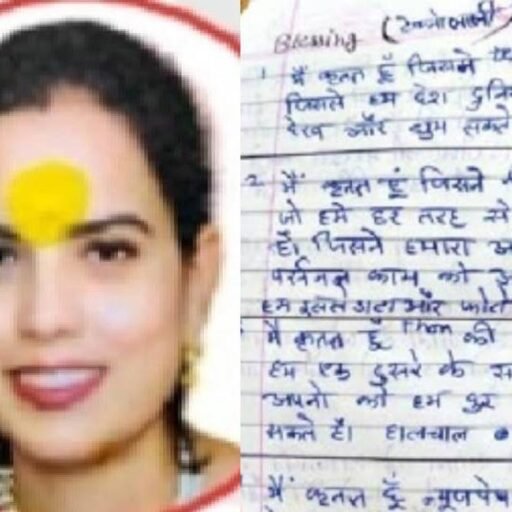 Blessing (खुशहाली)
1 मैं कृतज्ञ हूँ जिसने
जिससे हम देश
देख और घूम सकते
2. मैं कृतज्ञ हूँ जिसने
जो हमे हर तरह से
है। जिसने हमारा
पर्सनल काम को
हम इससे डाटा और फोटो
मैं कृतज्ञ हूँ Phone की
हम एक दुसरे के
अपनो को हम दुर
सकते है। हालचाल
मैं कृतज्ञ हूँ न्यूजपेप